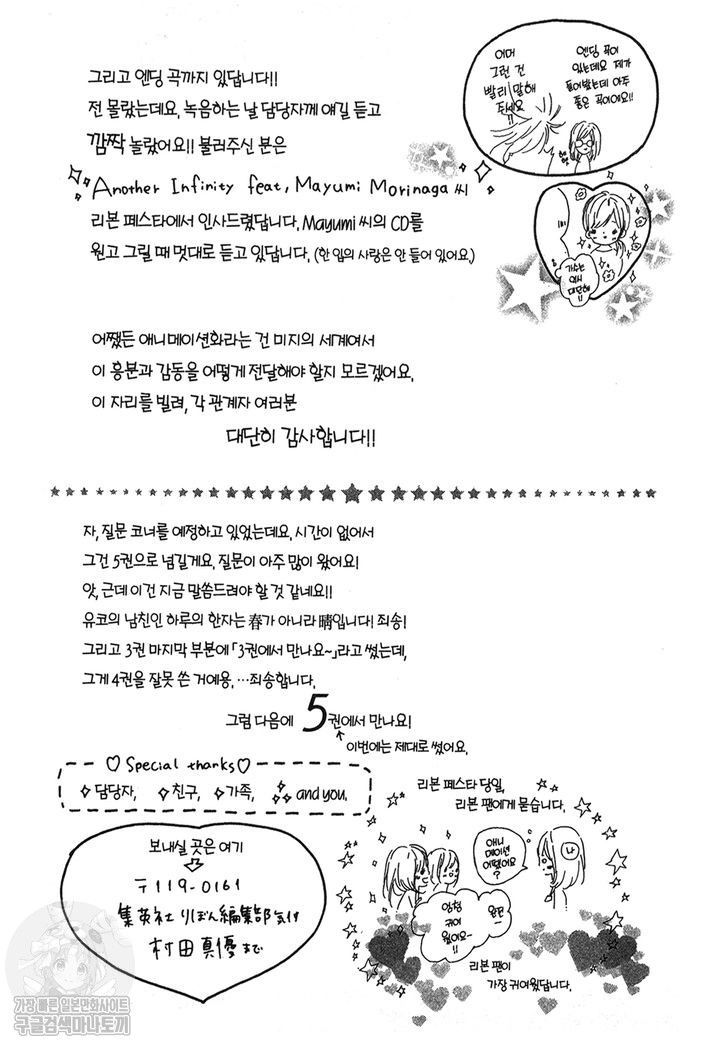 그리고 엔딩 곡까지 있답니다!!
전 몰랐는데요, 녹음하는 날 담당자께 얘길 듣고
깜짝 놀랐어요!! 불러주신 분은
Another Infinity feat, Mayumi Morinaga 씨
리본 페스타에서 인사드렸답니다. Mayumi 씨의 CD를
원고 그릴 때 멋대로 듣고 있답니다. (한 입의 사랑은 안 들어 있어요.)
엔딩 곡이
있는데요 제가
들어봤는데 아주
좋은 곡이에요!!
이며
그런 건
빨리 말해
주세요
!!
가수는
역시
대단해
!!
어쨌든 애니메이션화라는 건 미지의 세계여서
이 흥분과 감동을 어떻게 전달해야 할지 모르겠어요.
이 자리를 빌려, 각 관계자 여러분
대단히 감사합니다!!
자, 질문 코너를 예정하고 있었는데요, 시간이 없어서
그건 5권으로 넘길게요. 질문이 아주 많이 왔어요!
앗, 근데 이건 지금 말씀드려야 할 것 같네요!!
유코의 남친인 하루의 한자는 春가 아니라 晴입니다! 죄송!
그리고 3권 마지막 부분에 「3권에서 만나요~」라고 썼는데,
그게 4권을 잘못 쓴 거예용. …죄송합니다.
그럼 다음에 5권에서 만나요!
이번에는 제대로 썼어요.
♡ Special thanks ♡
담당자, 친구, 가족, and you.
보내실 곳은 여기
〒119-0161
集英社 りぼん編集部 気付
村田真優まで
리본 페스타 당일,
리본 팬에게 묻습니다.
애니
메이션
어땠어요
?
나
엄청
귀여
웠어요~
!!
리본 팬이
가장 귀여웠답니다.
가장 빠른 일본만화사이트
구글검색마나토끼